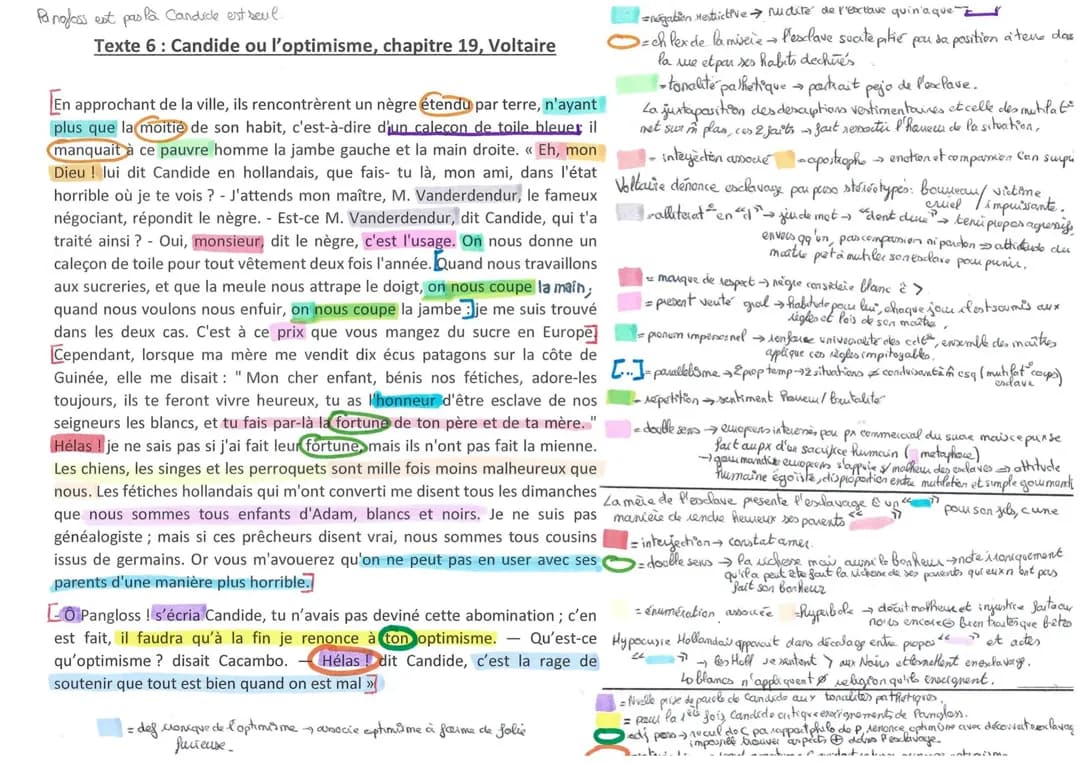 Pangloss est pas là Candide est seul.
Texte 6 : Candide ou l'optimisme, chapitre 19, Voltaire
[En approchant de la ville, ils rencontrèrent un nègre étendu par terre, n'ayant
plus que la moitié de son habit, c'est-à-dire d'un caleçon de toile bleue; il
manquait à ce pauvre homme la jambe gauche et la main droite. « Eh, mon
Dieu ! lui dit Candide en hollandais, que fais- tu là, mon ami, dans l'état
horrible où je te vois ? - J'attends mon maître, M. Vanderdendur, le fameux
négociant, répondit le nègre. - Est-ce M. Vanderdendur, dit Candide, qui t'a
traité ainsi ? - Oui, monsieur, dit le nègre, c'est l'usage. On nous donne un
caleçon de toile pour tout vêtement deux fois l'année. [Quand nous travaillons
aux sucreries, et que la meule nous attrape le doigt, on nous coupe la main;
quand nous voulons nous enfuir, on nous coupe la jambe :] je me suis trouvé
dans les deux cas. C'est à ce prix que vous mangez du sucre en Europe.]
[Cependant, lorsque ma mère me vendit dix écus patagons sur la côte de
Guinée, elle me disait : " Mon cher enfant, bénis nos fétiches, adore-les
toujours, ils te feront vivre heureux, tu as l'honneur d'être esclave de nos
seigneurs les blancs, et tu fais par-là la fortune de ton père et de ta mère. "
Hélas ! je ne sais pas si j'ai fait leur fortune, mais ils n'ont pas fait la mienne.
Les chiens, les singes et les perroquets sont mille fois moins malheureux que
nous. Les fétiches hollandais qui m'ont converti me disent tous les dimanches
que nous sommes tous enfants d'Adam, blancs et noirs. Je ne suis pas
généalogiste ; mais si ces prêcheurs disent vrai, nous sommes tous cousins
issus de germains. Or vous m'avouerez qu'on ne peut pas en user avec ses
parents d'une manière plus horrible.]
[- Ô Pangloss ! s'écria Candide, tu n'avais pas deviné cette abomination ; c'en
est fait, il faudra qu'à la fin je renonce à ton optimisme. — Qu'est-ce
qu'optimisme ? disait Cacambo. — Hélas ! dit Candide, c'est la rage de
soutenir que tout est bien quand on est mal »]
= def ironique de l'optimisme → associe optimisme à forme de folie
furieuse.
= négation restrictive → nudité de l'esclave qui n'a que
= ch lex de la misère → l'esclave suscite pitié par sa position à terre dans
la rue et par ses habits déchirés
= tonalité pathétique → portrait pejo de l'esclave.
La juxtaposition des descriptions vestimentaires et celle des mutilat°
met sur m plan, ces 2 faits → fait ressortir l'horreur de la situation.
= interjection associé = apostrophe → emotion et compassion Can
Voltaire dénonce esclavage par perso stéréotypés: bourreau / victime
cruel / impuissante.
= allitérat° en "d" → jeu de mot → "dent dure" → tenir propos agressifs
envers qq'un, pas compassion ni pardon → attitude du
maître prêt à mutiler son esclave pour punir.
= marque de respect → nègre considère blanc
= présent vérité gral → habitude pour lui, chaque jour il est soumis aux
règles et lois de son maître.
= pronom impersonnel → renforce universalité des ensemble des maîtres
applique ces règles impitoyables.
[...] = parallélisme → 2 prop temp → 2 situations ≠ conduisant à m csq (mutilat° corps)
esclave
= répétition → sentiment horreur / brutalité
= double sens → européens intéressés par px commercial du sucre mais ce px se
fait au px d'un sacrifice humain ( métaphore)
→ gourmandise européens s'appuie s/ malheur des esclaves → attitude
humaine égoïste, disproportion entre mutilation et simple gourmandi
La mère de l'esclave présente l'esclavage un " " pour son fils, c une
manière de rendre heureux ses parents " "
= interjection → constat amer.
= double sens → la richesse mais aussi le bonheur → note ironiquement
qu'il a peut être fait la richesse de ses parents qui eux n'ont pas
fait son bonheur
= énumération associée = hyperbole → décrit malheur et injustice faite aux
noirs encore bien traités que bêtes
Hypocrisie Hollandais apparait dans décalage entre propos " " et actes
" " → les Holl se sentent aux Noirs et les mettent en esclavage.
↳ blancs n'appliquent religion qu'ils enseignent.
= Nvelle prise de parole de Candide aux tonalités pathétiques.
= pour la 1ère fois, Candide critique enseignements de Pangloss.
adj poss → recul de C par rapport philo de P, renonce optimisme avec découverte esclavag
impossible trouver aspects ⊕ dans l'esclavage.